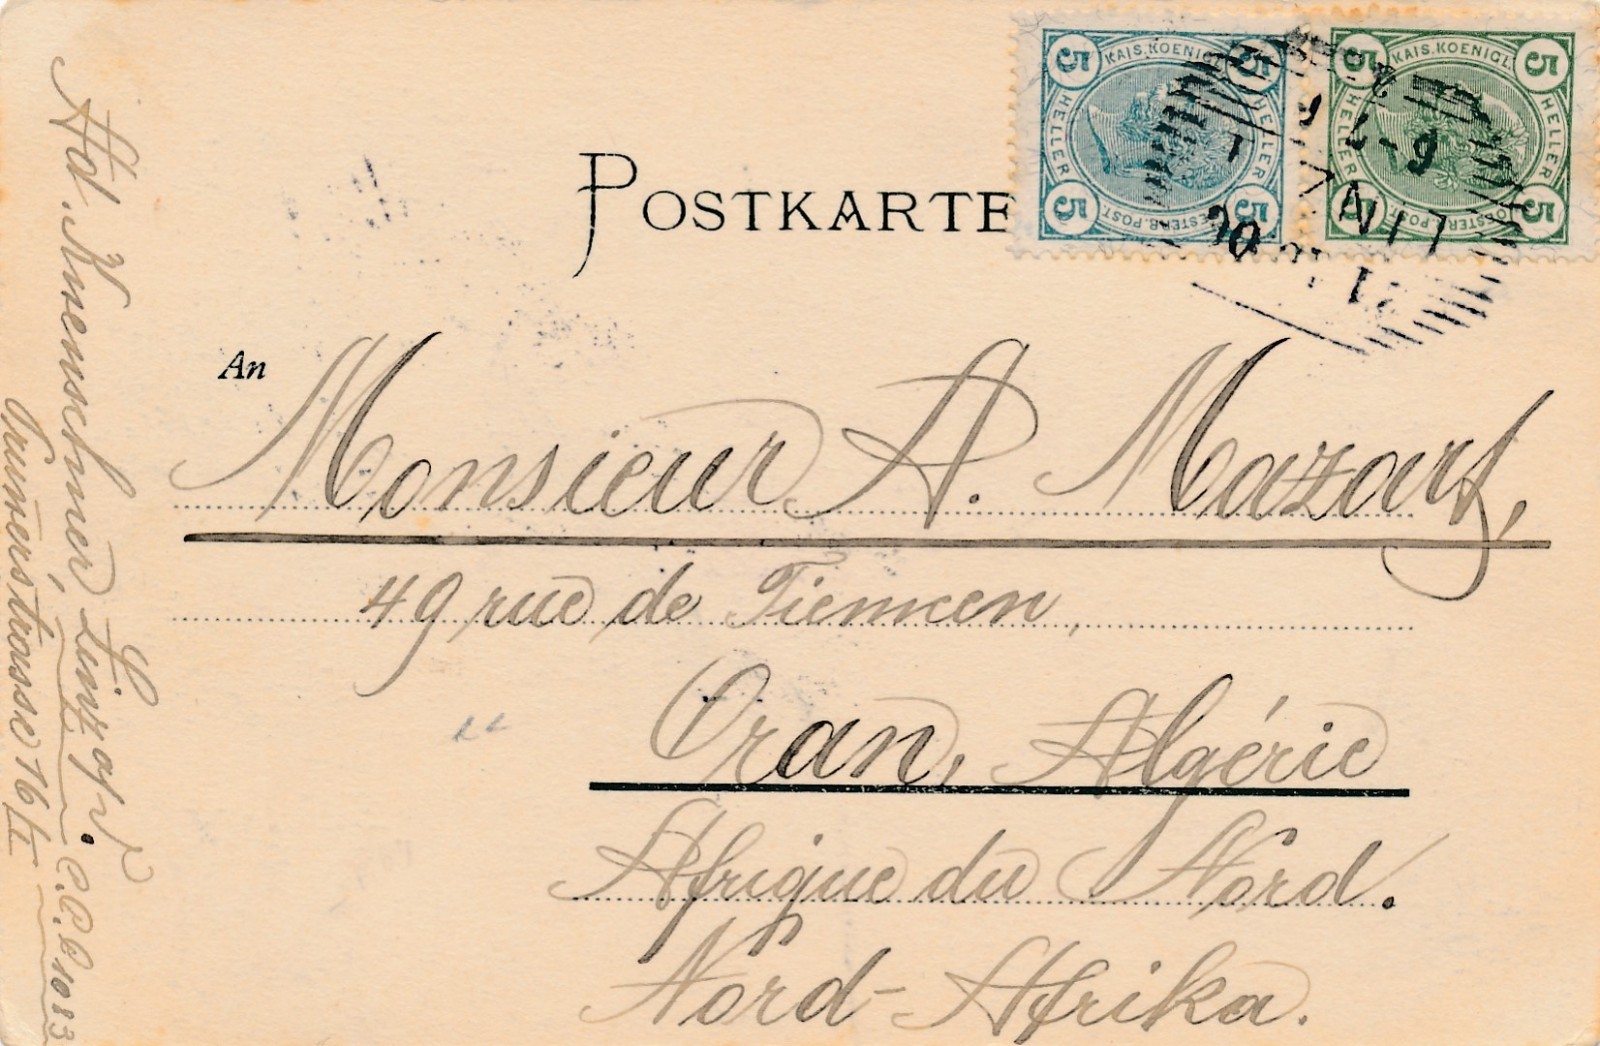 POSTKARTE
KAIS. KOENIGL.
5 5
HELLER HELLER
OESTERR. POST.
5 5
KAIS. KOENIGL.
5 5
HELLER HELLER
OESTERR. POST.
5 5
LINZ
6-7
An
Monsieur A. Mazary,
49 rue de Tiemcen,
Oran, Algérie
Afrique du Nord.
Nord-Afrika.
Ad.
Linz a/D. C.C.P. 1083
strasse 16